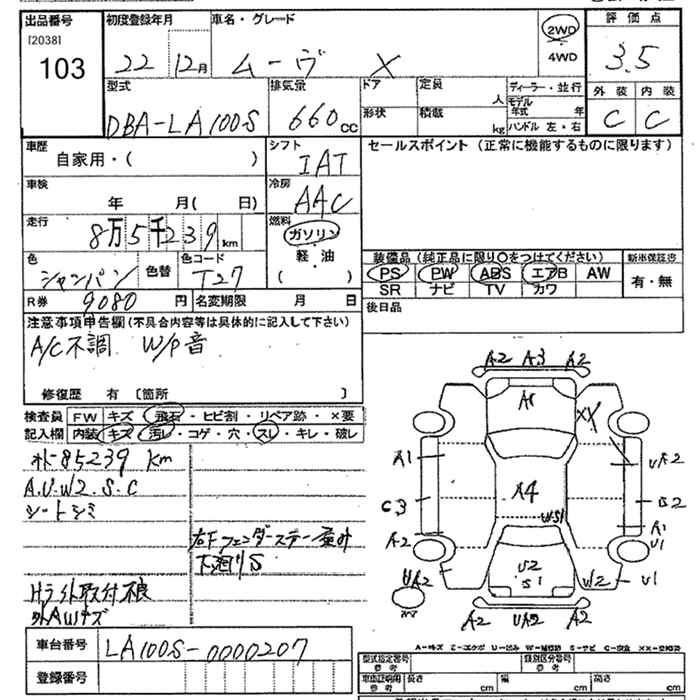 出品番号 初度登録年月 車名・グレード 2WD 評価点
[2038]
103 22 12月 ムーヴ X 4WD 3.5
型式 排気量 ドア 定員 人 ディーラー・並行 外装 内装
DBA-LA100S 660cc 形状 積載 kg モデル年式 年 C C
ハンドル 左・右
車歴 シフト セールスポイント (正常に機能するものに限ります)
自家用・( ) IAT
車検 冷房
年 月( 日) AAC
走行 燃料
8万5千239km ガソリン
色 色替 色コード 軽・油 装備品 (純正品に限り○をつけてください) 新車保証書
シャンパン T27 ( ) PS PW ABS エアB AW 有・無
SR ナビ TV カワ
R券 9080円 名変期限 月 日 後日品
注意事項申告欄 (不具合内容等は具体的に記入して下さい)
A/C不調 W/P音
修復歴 有 〔箇所 〕
検査員 FW キズ・飛石・ヒビ割・リペア跡・×要
記入欄 内装 キズ・汚レ・コゲ・穴・スレ・キレ・破レ
85239 km
A.U.W2.S.C
シートシミ
右Fフェンダーステー
下廻りS
外取付不良
外AWキズ
A2 A3 A2
A1
XX
A1 UA2
C3 A4 B2
W51 A1
A2 U1
UA2 U2 W2 U1
S1
A2 UA2 A2
A-キズ E-エクボ U-凹み W-補修跡 S-サビ C-腐食 XX-交換済
車台番号 LA100S-0000207
登録番号
型式指定番号 参考 類別区分番号 参考
車庫証明用 参考 長さ cm 幅 cm 高さ cm